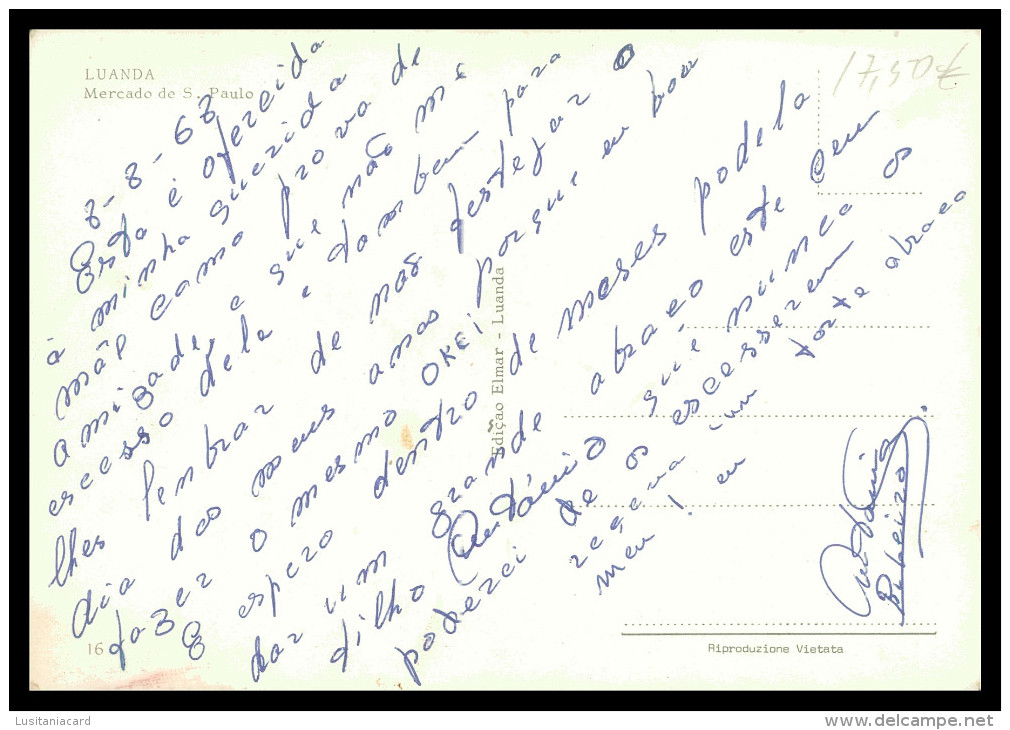 LUANDA
Mercado de S. Paulo
8-8-63
Esta é oferecida
à minha querida
mãe como prova de
amizade e que não me
esesso dela e tambem para
lhes lenbrar de nos festejar o
dia dos meus anos porque eu vou
fazer o mesmo OKEi
E espero dentro de meses podela
dar um grande abraço este Ceu
filho António que nunca
poderei de os escesserem
regena um forte abraco
meu! eu
António
Ribeiro
Edição Elmar - Luanda
16
Riproduzione Vietata
17,50
Lusitaniacard
www.delcampe.net